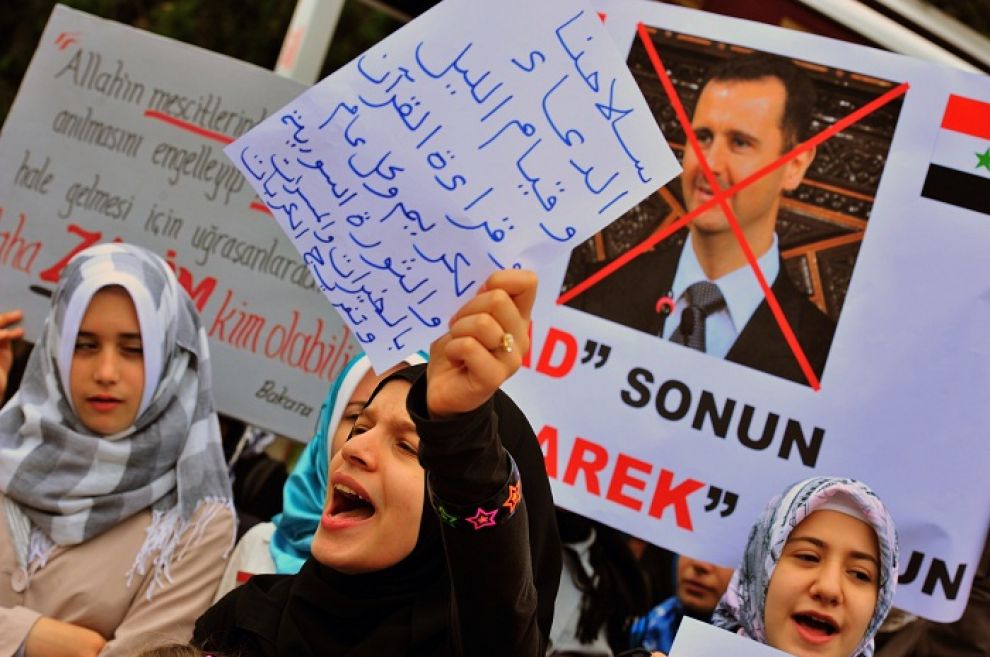 "Allah'ın mescitlerin
anılmasını engelleyip
hale gelmesi için uğraşanlarda
aha kim olabili
Bakara
سلاحنا
الدعاء
و قيام الليل
و قراءة القرآن
لكريم وكل عام
والثورة السورية
بالخيرات والمسرات
وتفريج الكربات
AD” SONUN
AREK”
UN